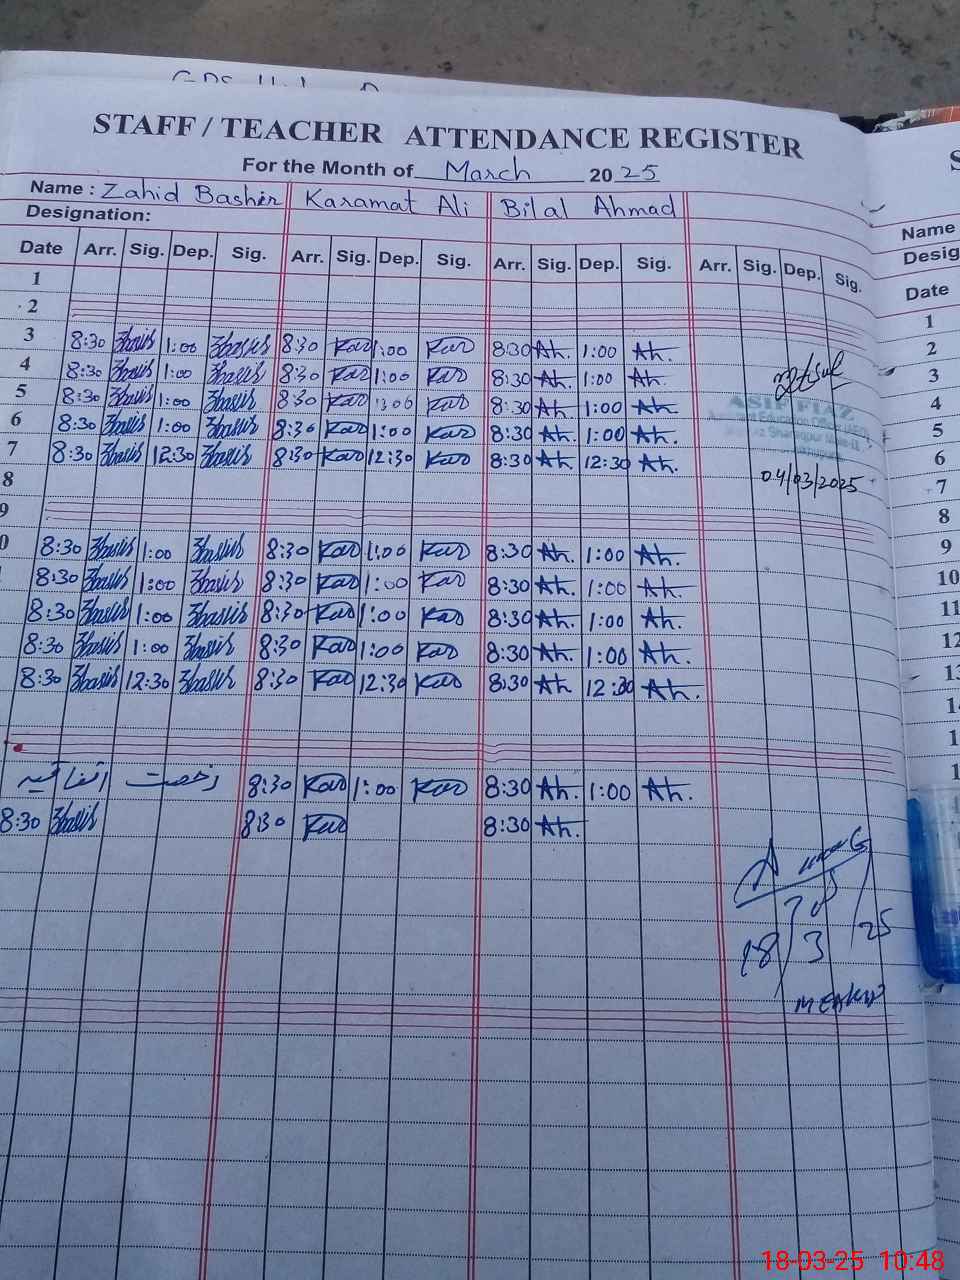 STAFF / TEACHER ATTENDANCE REGISTER
For the Month of March 2025
Name : Zahid Bashir Karamat Ali Bilal Ahmad
Designation:
Date Arr. Sig. Dep. Sig. Arr. Sig. Dep. Sig. Arr. Sig. Dep. Sig. Arr. Sig. Dep. Sig.
1
2
3 8:30 1:00 8:30 Kar 1:00 Kar 8:30 Ah. 1:00 Ah.
4 8:30 1:00 8:30 Kar 1:00 Kar 8:30 Ah. 1:00 Ah.
5 8:30 1:00 8:30 Kar 1:00 Kar 8:30 Ah. 1:00 Ah.
6 8:30 1:00 8:30 Kar 1:00 Kar 8:30 Ah. 1:00 Ah.
7 8:30 12:30 8:30 Kar 12:30 Kar 8:30 Ah. 12:30 Ah.
8
9
0 8:30 1:00 8:30 Kar 1:00 Kar 8:30 Ah. 1:00 Ah.
8:30 1:00 8:30 Kar 1:00 Kar 8:30 Ah. 1:00 Ah.
8:30 1:00 8:30 Kar 1:00 Kar 8:30 Ah. 1:00 Ah.
8:30 1:00 8:30 Kar 1:00 Kar 8:30 Ah. 1:00 Ah.
8:30 12:30 8:30 Kar 12:30 Kar 8:30 Ah 12:30 Ah.
رخصت اتفاقیہ 8:30 Kar 1:00 Kar 8:30 Ah. 1:00 Ah.
8:30 8:30 Kar 8:30 Ah.
ASIF FIAZ
04/03/2025
18/3/25
Name
Date
1
2
3
4
5
6
7
8
9
10
11
12
13
18-03-25 10:48